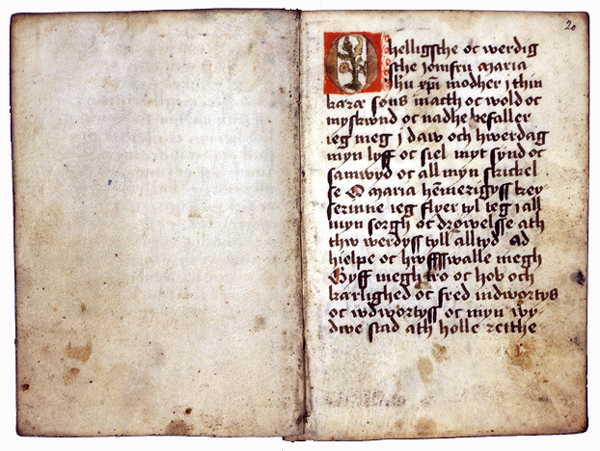 20
O helligsche oc werdig
sche iomfru maria
ihu xpi modher j thin
kæræ søns macth oc wold oc
myskwnd oc nadhe befaller
ieg meg j daw och hwerdag
myn lyff oc siel myt synd oc
samwyd oc all myn skickel
se O maria hēmerigyss key
serinne ieg flyer tyl teg j all
myn sorgh oc drøwelsse ath
thw werdyss tyll alltyd ad
hielpe oc hwsswalle megh
Gyff megh tro oc hob och
karlighed oc fred indwortys
oc wdwortyss oc myn wy
dwe stad ath holle reithe